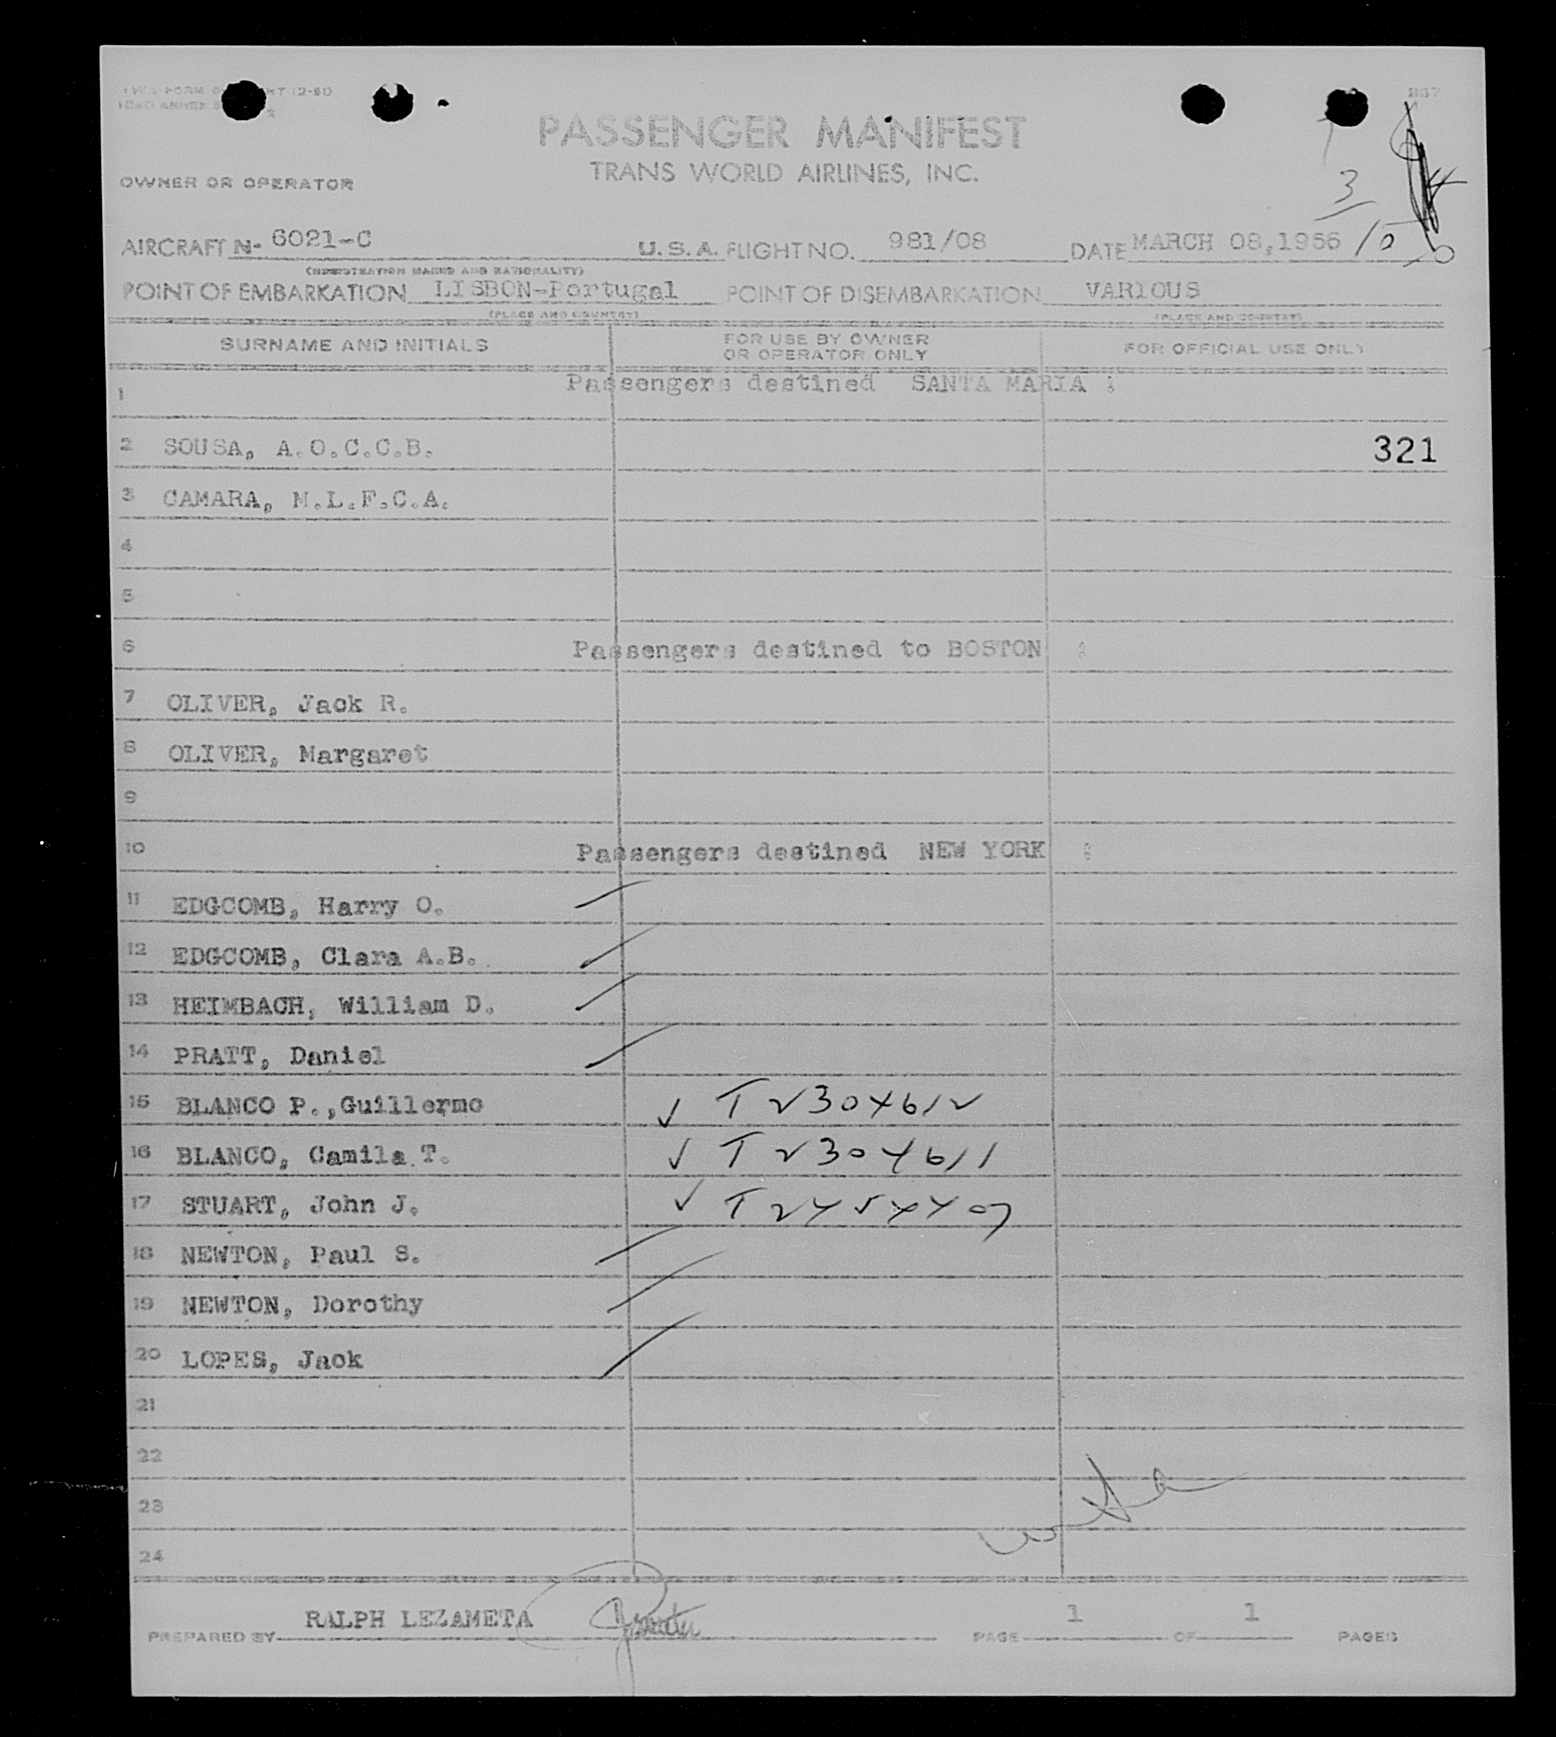 PASSENGER MANIFEST
TRANS WORLD AIRLINES, INC.
OWNER OR OPERATOR
3
AIRCRAFT N- 6021-C U.S.A. FLIGHT NO. 981/08 DATE MARCH 08,1956
POINT OF EMBARKATION LISBON-Portugal POINT OF DISEMBARKATION VARIOUS
(PLACE AND COUNTRY) (PLACE AND COUNTRY)
SURNAME AND INITIALS FOR USE BY OWNER OR OPERATOR ONLY FOR OFFICIAL USE ONLY
1 Passengers destined SANTA MARIA :
2 SOUSA, A.O.C.C.B. 321
3 CAMARA, M.L.F.C.A.
4
5
6 Passengers destined to BOSTON :
7 OLIVER, Jack R.
8 OLIVER, Margaret
9
10 Passengers destined NEW YORK :
11 EDGCOMB, Harry O.
12 EDGCOMB, Clara A.B.
13 HEIMBACH, William D.
14 PRATT, Daniel
15 BLANCO P.,Guillermo ✓ T2304612
16 BLANCO, Camila T. ✓ T2304611
17 STUART, John J. ✓
18 NEWTON, Paul S.
19 NEWTON, Dorothy
20 LOPES, Jack
21
22
23
24
PREPARED BY RALPH LEZAMETA PAGE 1 OF 1 PAGES